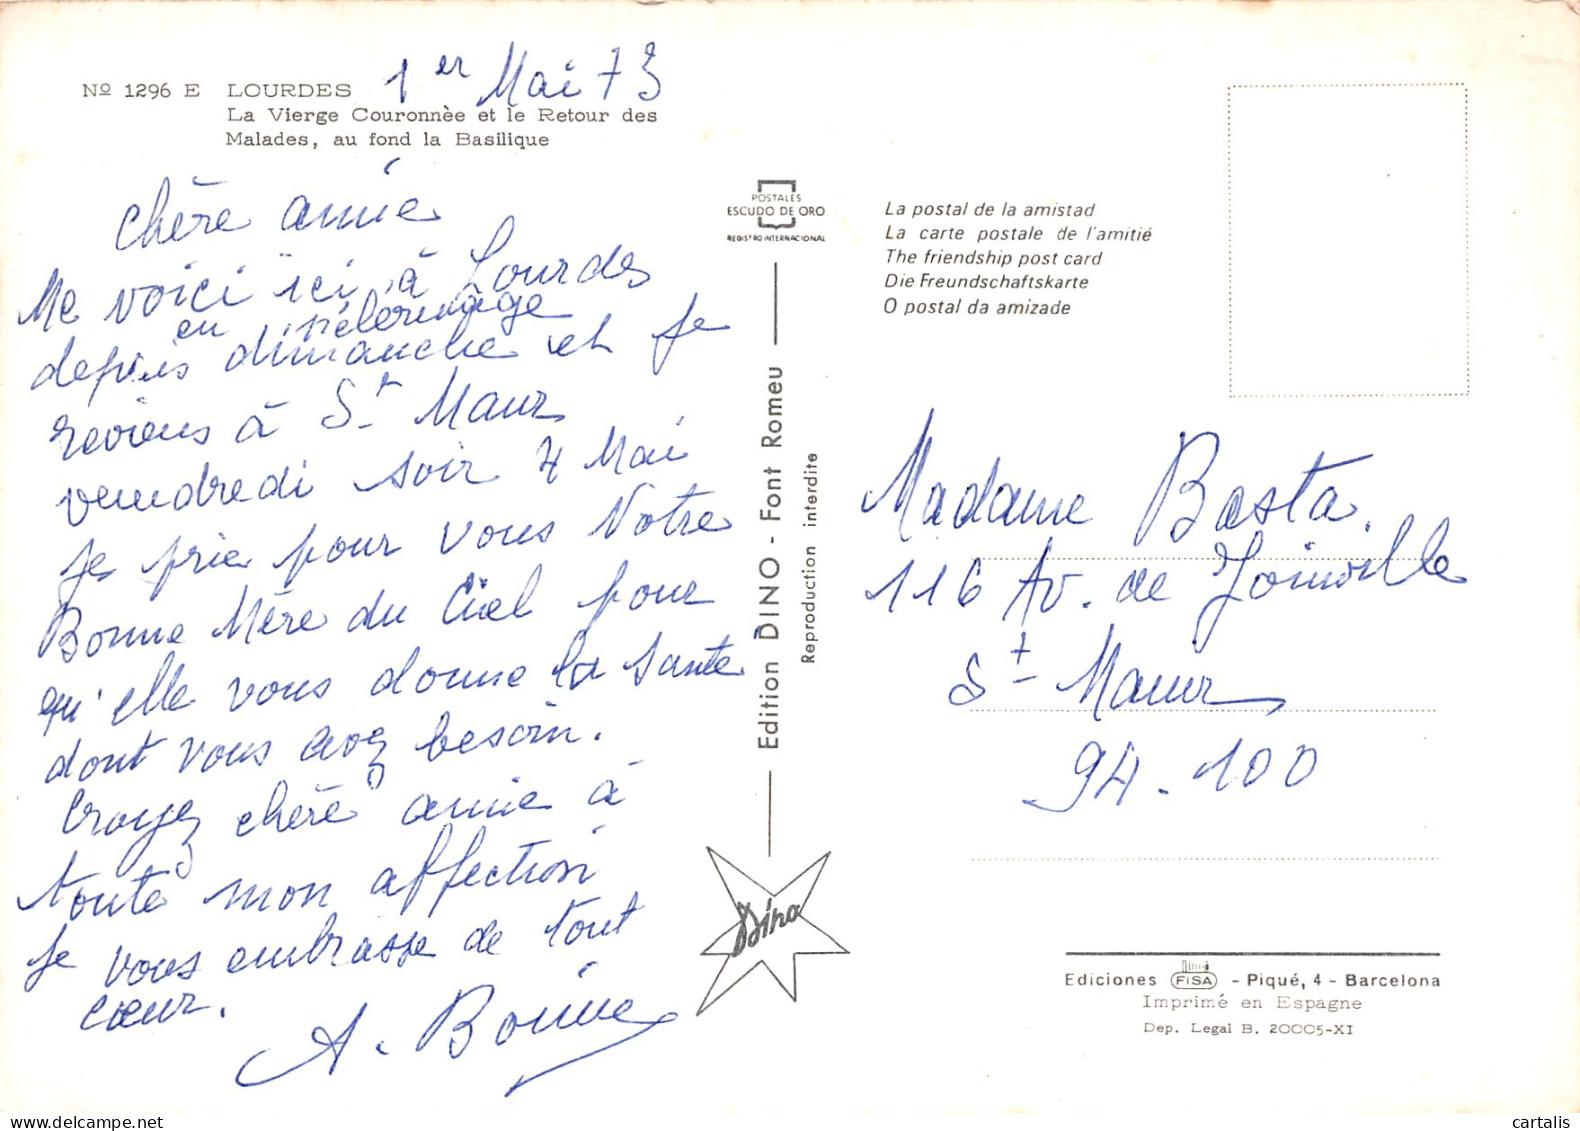 Nº 1296 E LOURDES
La Vierge Couronnèe et le Retour des
Malades, au fond la Basilique
1er Mai 73
chère amie
Me voici ici à Lourdes
en pélérinage
depuis dimanche et je
reviens à St Maur
vendredi soir 4 Mai
je prie pour vous Notre
Bonne Mère du Ciel pour
qu'elle vous donne la santé
dont vous avez besoin.
Croyez chère amie à
toute mon affection
je vous embrasse de tout
cœur.
A. Bonine
POSTALES
ESCUDO DE ORO
REGISTRO INTERNACIONAL
Edition DINO - Font Romeu
Reproduction interdite
Dino
La postal de la amistad
La carte postale de l'amitié
The friendship post card
Die Freundschaftskarte
O postal da amizade
Madame Basta.
116 Av. de Joinville
St Maur
94-100
Ediciones FISA - Piqué, 4 - Barcelona
Imprimé en Espagne
Dep. Legal B. 20005-XI
cartalis